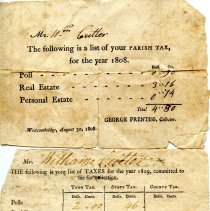 Mr. Wm Cutler
The following is a list of your PARISH TAX,
for the year 1808.
Dols. Cts.
Poll - - - - 0 90
Real Estate - - - - 3 16
Personal Estate - - - - 0 74
Total - 4 80
GEORGE PRENTISS, Collector.
Westcambridge, August 30, 1808.
Mr. William Cutler
THE following is your list of TAXES for the year 1809, committed to
me for collection.
TOWN TAX. STATE TAX. COUNTY TAX.
Dolls. Cents. Dolls. Cents. Dolls. Cents.